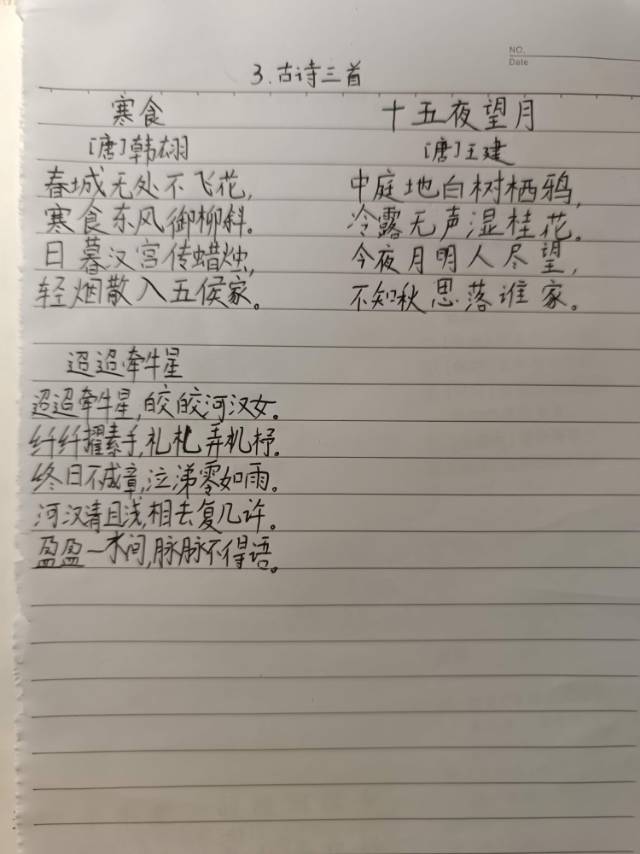 NO.
Date
3.古诗三首
寒食
[唐]韩翃
春城无处不飞花,
寒食东风御柳斜。
日暮汉宫传蜡烛,
轻烟散入五侯家。
十五夜望月
[唐]王建
中庭地白树栖鸦,
冷露无声湿桂花。
今夜月明人尽望,
不知秋思落谁家。
迢迢牵牛星
迢迢牵牛星,皎皎河汉女。
纤纤擢素手,札札弄机杼。
终日不成章,泣涕零如雨。
河汉清且浅,相去复几许。
盈盈一水间,脉脉不得语。